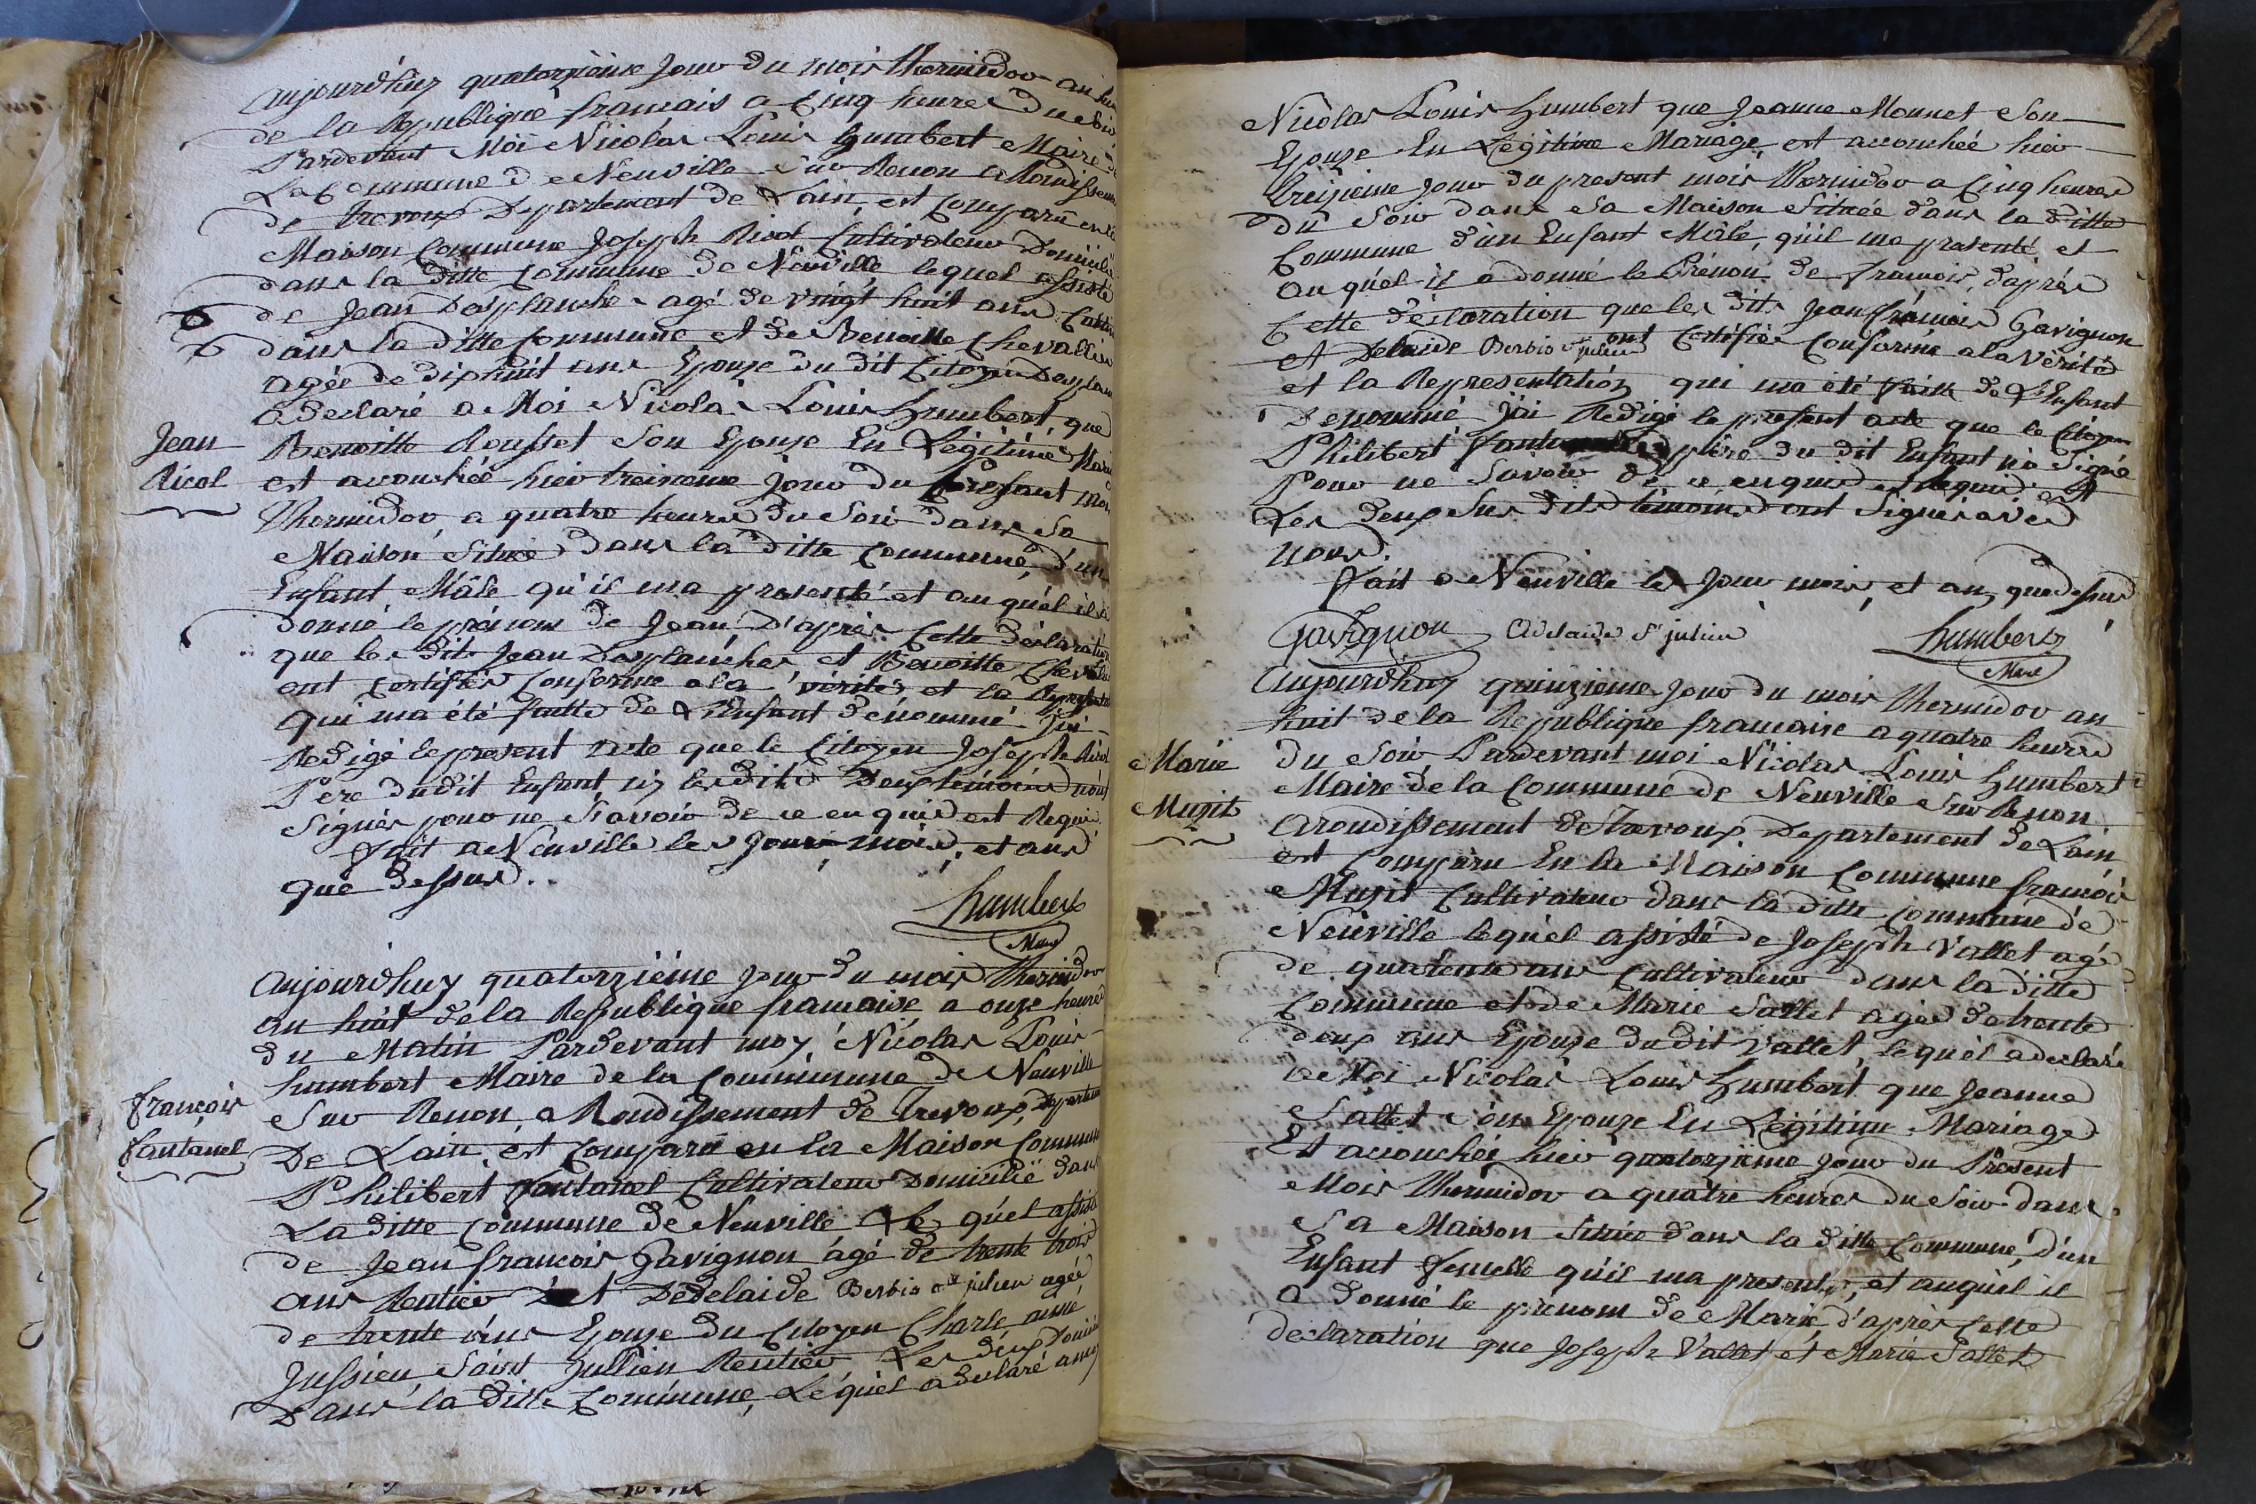 Aujourd'huy quatorzième Jour du mois thermidor an huit
de la Republique francais a Cinq heures du Soir
Pardevant Moi Nicolas Louis humbert Maire de
La Commune de Neuville Sur Renon a Rondissement
de trevoux Departement de Lain, est Comparu en la
Maison Commune Joseph Ricol Cultivateur Domicilié
dans la ditte Commune de Neuville lequel assisté
de Jean Desplanche agé de vingt huit ans
dans la ditte Commune et de Benoitte Chevallier
agée de dixhuit ans Epouze du dit Citoyen
a déclaré a Moi Nicolas Louis humbert, que
Benoitte Rousset Son Epouze En Légitime
Jean
Ricol
est accouchée hier treizieme Jour du present mois
Thermidor a quatre heures du Soir dans Sa
Maison Située dans la ditte Commune d'un
Enfant Mâle qu'il ma presenté et auquel il a
donné le prénom de Jean D'après Cette déclaration
que les dits Jean Desplanches et Benoitte
ont Certifiés Conforme a la vérité et la
qui ma été faitte de L'Enfant dénommé J'ai
Redigé le present acte que le Citoyen Joseph Ricol
Pere dudit Enfant ny les dits Deux témoins n'ont
Signés pour ne Sçavoir de ce enquis est Requis
fait a Neuville les Jours mois, et ans
que dessus.
humbert
Maire
Aujourd'huy quatorzieme Jour du mois thermidor
an huit de la Republique francaise a onze heures
du Matin Pardevant moy Nicolas Louis
humbert Maire de la Commune de Neuville
Sur Renon, a Rondissement de Trevoux,
François
fantanel
De Lain, est Comparu en la Maison Commune
Philibert fantanel Cultivateur Domicilié dans
La ditte Commune de Neuville Lequel assisté
de Jean françois Gavignon âgé de trente trois
ans Rentier Et Dedelaide st julien agée
de trente ans Epouze du Citoyen Charle
Jussieu Saint Jullien Rentier Les deux
Dans la ditte Commune, Lequel a déclaré a moy
Nicolas Louis humbert que Jeanne Monnet Son
Epouze En Légitime Mariage est accouchée hier
treizieme Jour du present mois thermidor a Cinq heures
du Soir dans Sa Maison Située dans la ditte
Commune d'un Enfant Mâle, qu'il ma presenté et
auquel il a donné le Prénom de francois, daprès
Cette déclaration que les dits Jean francois Gavignon
et Delaide st julien ont Certifiés Conforme a la Vérité
et la Representation qui ma été faitte de L'Enfant
Denommé J'ai Redigé le present acte que le Citoyen
Philibert père du dit Enfant n'a Signé
Pour ne Savoir de ce enquis Requis Et
Les deux Sus dits témoins ont Signés avec
nous.
fait a Neuville les Jour mois, et an, que dessus
Gavignon adelaide st julien humbert
Maire
Aujourdhuy quinzieme Jour du mois thermidor an
huit de la Republique francaise a quatre heures
Marie
Muzit
du Soir Pardevant moi Nicolas Louis humbert
Maire de la Commune de Neuville Sur Renon
arondissement de Trevoux Departement de Lain
est Comparu En la Maison Commune francois
Muzit Cultivateur dans la ditte Commune de
Neuville lequel assisté de Joseph Vallet agé
de quarante ans Cultivateur dans la ditte
Commune et de Marie Sallet agée de trente
deux ans Epouze du dit Vallet, lequel a declaré
a Moi Nicolas Louis humbert que Jeanne
Sallet Son Epouze En Légitime Mariage
Est accouchée hier quatorzieme Jour du Present
Mois thermidor a quatre heures du Soir dans
Sa Maison Située dans la ditte Commune, d'un
Enfant femelle qu'il ma presenté, et auquel il
a donné le prenom de Marie d'après Cette
declaration que Joseph Vallet et Marie Sallet